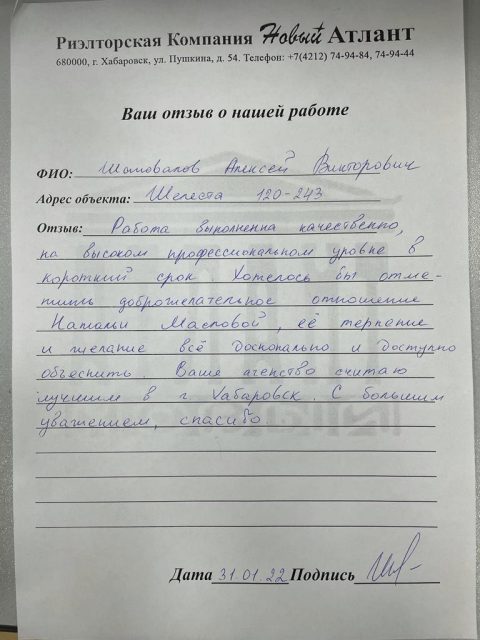 Риэлторская Компания Новый Атлант
680000, г. Хабаровск, ул. Пушкина, д. 54. Телефон: +7(4212) 74-94-84, 74-94-44
Ваш отзыв о нашей работе
ФИО: Шаповалов Алексей Викторович
Адрес объекта: Шелеста 120-243
Отзыв: Работа выполненна качественно,
на высоком профессиональном уровне в
короткий срок. Хотелось бы отме-
тить доброжелательное отношение
Натальи Масловой, её терпение
и желание всё досконально и доступно
объеснить. Ваше агенство считаю
лучшим в г Хабаровск. С большим
уважением, спасибо
Дата 31.01.22 Подпись